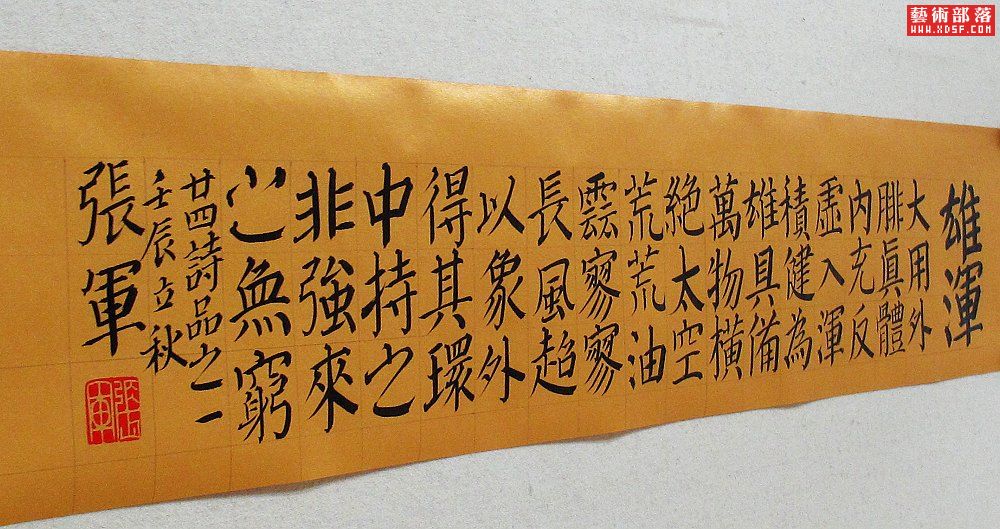 雄渾
大用外
腓眞體
内充反
虛入渾
積健為
雄具備
萬物橫
絶太空
荒荒油
雲寥寥
長風超
以象外
得其環
中持之
非強來
之無窮
廿四詩品之一
壬辰立秋
張軍
張軍
藝術部落
WWW.XDSF.COM